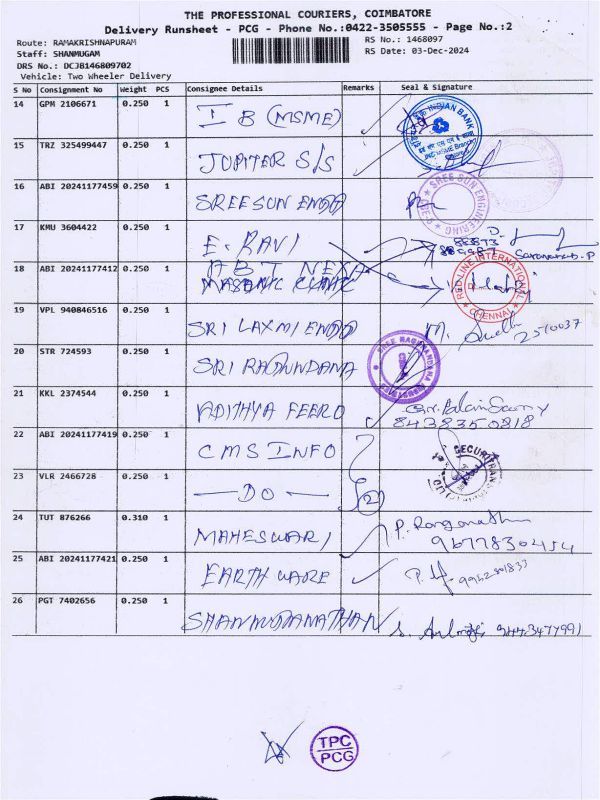 THE PROFESSIONAL COURIERS, COIMBATORE
Delivery Runsheet - PCG - Phone No.:0422-3505555 - Page No.:2
Route: RAMAKRISHNAPURAM
RS No.: 1468097
Staff: SHANMUGAM
RS Date: 03-Dec-2024
DRS No.: DCJ8146809702
Vehicle: Two Wheeler Delivery
S No Consignment No Weight PCS Consignee Details Remarks Seal & Signature
14 GPM 2106671 0.250 1
I B (MSME)
INDIAN BANK
15 TRZ 325499447 0.250 1
JUPITER S/S
16 ABI 20241177459 0.250 1
SREE SUN ENGG
SREE SUN ENGINEERING
17 KMU 3604422 0.250 1
E. RAVI
18 ABI 20241177412 0.250 1
A B T NEXA
MASONIC CLINIC
RED-LINE INTERNATIONAL
CHENNAI
19 VPL 940846516 0.250 1
SRI LAXMI ENGG
2510037
20 STR 724593 0.250 1
SRI RAGUNDANA
21 KKL 2374544 0.250 1
ADITHYA FEERO
8438350818
22 ABI 20241177419 0.250 1
CMS INFO
23 VLR 2466728 0.250 1
— DO — 2
24 TUT 876266 0.310 1
MAHESWARI P. Ranganathan
9677830454
25 ABI 20241177421 0.250 1
EARTH WARE
26 PGT 7402656 0.250 1
SHANMUGANATHAN
TPC
PCG